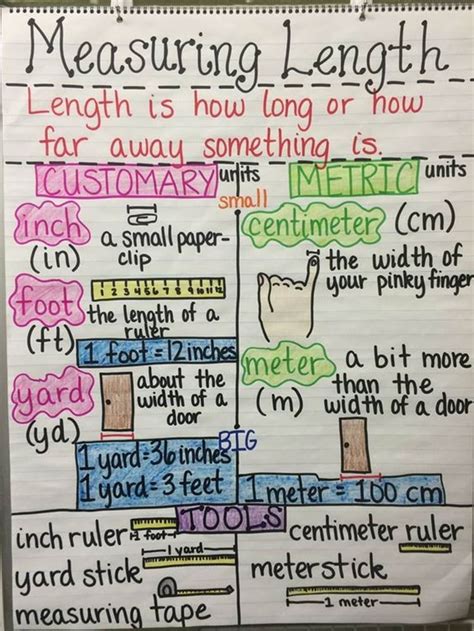 Measuring Length
Length is how long or how
far away something is.
CUSTOMARY units
METRIC units
small
inch
(in)
a small paper-
clip
foot
(ft)
1 2 3 4 5 6 7 8 9 10 11 12
the length of a
ruler
1 foot = 12 inches
yard
(yd)
about the
width of a
door
1 yard = 36 inches
1 yard = 3 feet
centimeter (cm)
the width of
your pinky finger
meter
(m)
a bit more
than the
width of a door
BIG
1 meter = 100 cm
TOOLS
inch ruler
1 foot
yard stick
1 yard
measuring tape
centimeter ruler
meterstick
1 meter